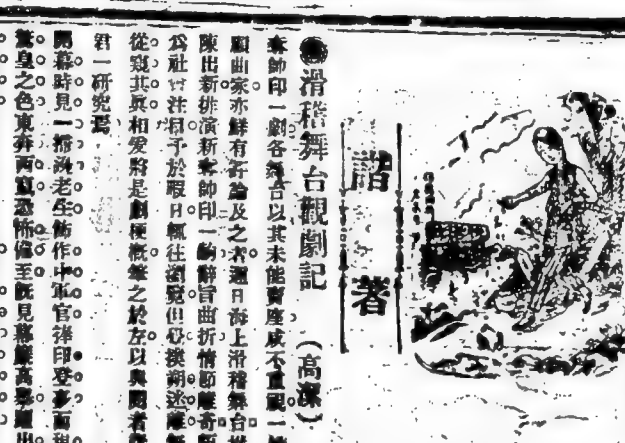 諧著
●滑稽舞台觀劇記（高潔）
奪帥印一劇各舞台以其未能賣座咸不重視一
顧曲家亦鮮有評論及之者邇日海上滑稽舞台
陳出新排演新奪帥印一齣辭旨曲折情節離奇
爲社會注目予於暇日輒往瀏覽但必撲朔迷離
從窺其眞相爰將是劇梗概筆之於左以與閱者
君一研究焉
開幕時見一老生飾作中軍官捧印登臺面現
驚皇之色東奔西竄恐怖倍至旣見幕簾高懸